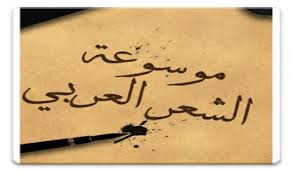 موسوعة
الشعر العربي